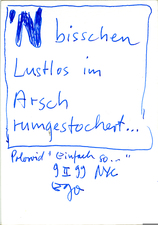 'N bisschen
Lustlos im
Arsch
rumgestochert...
Polaroid "Einfach so..."
9 II 99 NYC